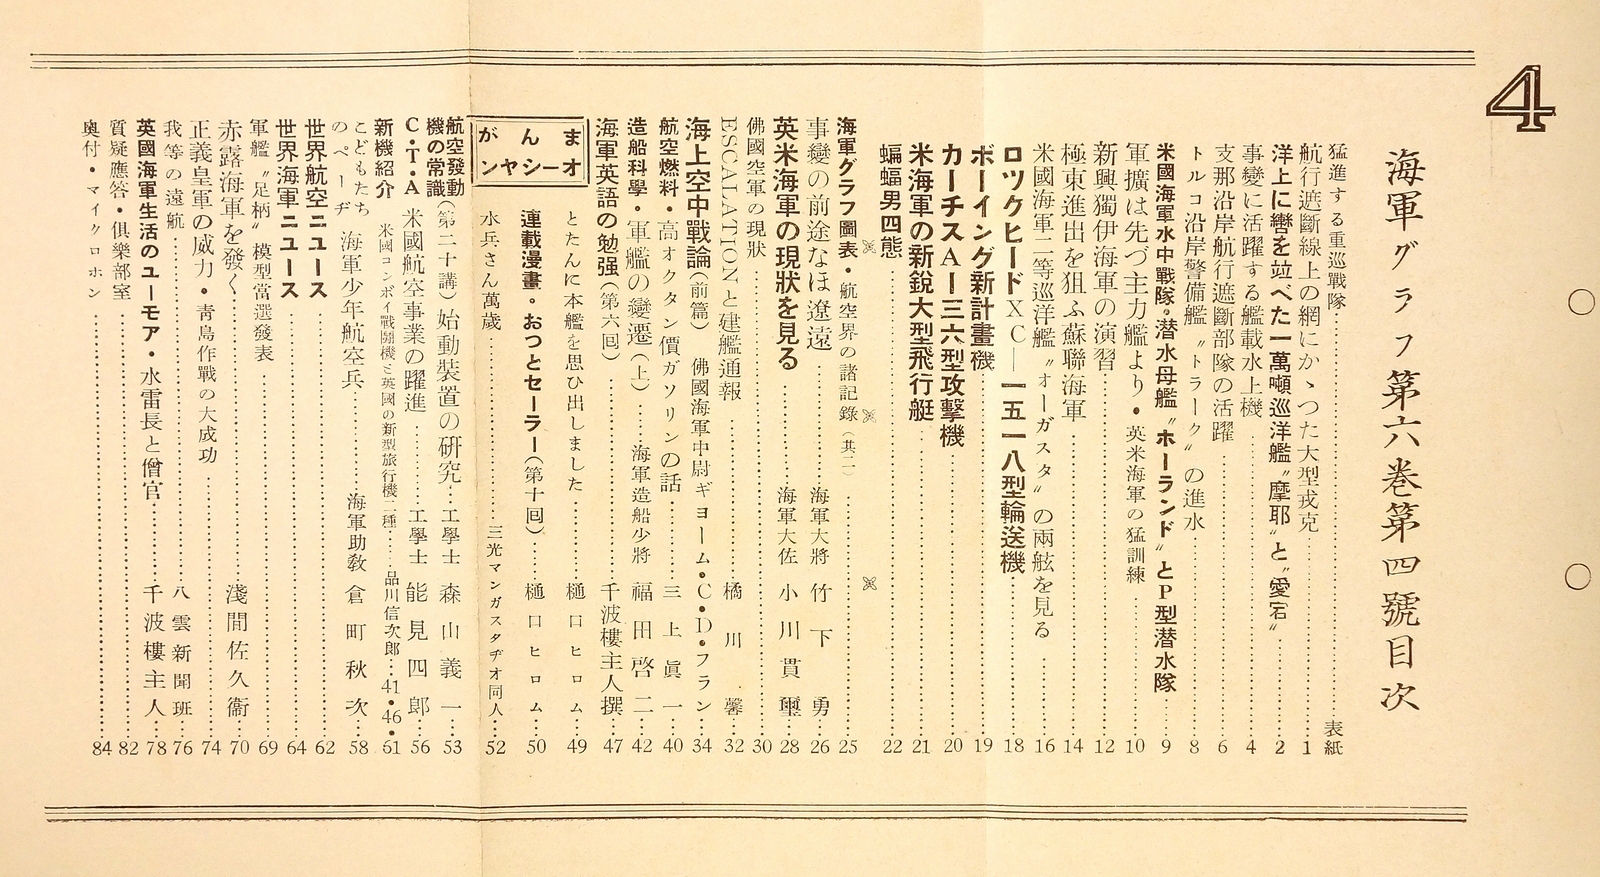 4
海軍グラフ第六巻第四號目次
猛進する重巡戰隊 表紙
航行遮斷線上の網にかゝつた大型戎克 1
洋上に轡を竝べた一萬噸巡洋艦〝摩耶〟と〝愛宕〟 2
事變に活躍する艦載水上機 4
支那沿岸航行遮斷部隊の活躍 6
トルコ沿岸警備艦〝トラーク〟の進水 8
米國海軍水中戰隊。潜水母艦〝ホーランド〟とP型潜水隊 9
軍擴は先づ主力艦より・英米海軍の猛訓練 10
新興獨伊海軍の演習 12
極東進出を狙ふ蘇聯海軍 14
米國海軍二等巡洋艦〝オーガスタ〟の兩舷を見る 16
ロツクヒードXC―一五一八型輪送機 18
ボーイング新計畫機 19
カーチスA―三六型攻擊機 20
米海軍の新銳大型飛行艇 21
蝙蝠男四態 22
海軍グラフ圖表・航空界の諸記錄(其二) 25
事變の前途なほ遼遠 海軍大將 竹下勇 26
英米海軍の現狀を見る 海軍大佐 小川貫璽 28
佛國空軍の現狀 30
ESCALATIONと建艦通報 橘川馨 32
海上空中戰論(前篇) 佛國海軍中尉ギヨーム・C・D・フラン 34
航空燃料・高オクタン價ガソリンの話 三上眞一 40
造船科學・軍艦の變遷(上) 海軍造船少將 福田啓二 42
海軍英語の勉强(第六回) 千波樓主人撰 47
まんが
オーシヤン
とたんに本艦を思ひ出しました 樋口ヒロム 49
連載漫畫・おつとセーラー(第十回) 樋口ヒロム 50
水兵さん萬歲 三光マンガスタヂオ同人 52
航空發動機の常識(第二十講)始動裝置の硏究 工學士 森山義一 53
C・T・A 米國航空事業の躍進 工學士 能見四郎 56
新機紹介 米國コンボイ戰鬪機と英國の新型旅行機二種 品川信次郎 41・46・61
こどもたちのページ 海軍少年航空兵 海軍助敎 倉町秋次 58
世界航空ニユース 62
世界海軍ニユース 64
軍艦〝足柄〟模型當選發表 69
赤露海軍を發く 淺間佐久衞 70
正義皇軍の威力・靑島作戰の大成功 74
我等の遠航 八雲新聞班 76
英國海軍生活のユーモア・水雷長と僧官 千波樓主人 78
質疑應答・俱樂部室 82
奥付・マイクロホン 84